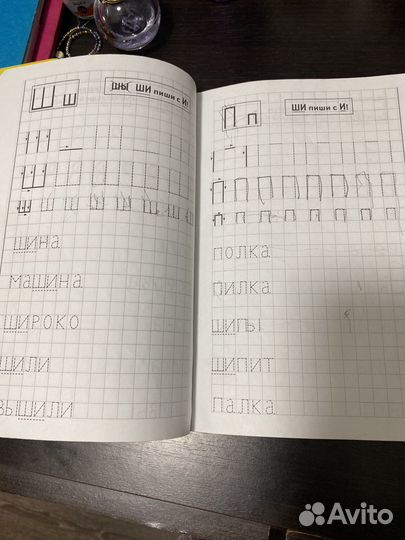 Ш ш
ШЫ ШИ пиши с И!
шина
машина
широко
шили
вышили
П п
ШИ пиши с И!
полка
пилка
шипы
шипит
палка
Avito